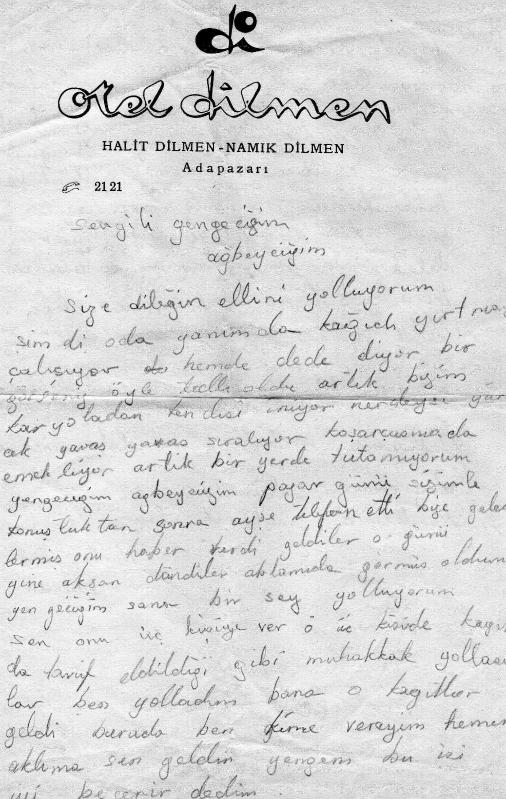 di
otel dilmen
HALİT DİLMEN-NAMIK DİLMEN
Adapazarı
2121
Sevgili yengeciğim
ağbeyciğim
Size dileğin ellini yolluyorum
şimdi oda yanımda kağıdı yırtma
çalışıyor hemde dede diyor bir
öyle tatlı oldu artık bizim
karyoladan kendisi iniyor nerdeyse yür
ek yavaş yavaş sıralıyor
emekliyor artık bir yerde tutamıyorum
yengeciğim ağbeyciğim pazar günü sizinle
konuştuktan sonra ayşe telefon etti bize gelec
lermiş onu haber verdi geldiler o günü
yine akşan döndiler ablamıda görmüş oldum
yengeciğim sana bir şey yolluyorum
sen onu üç kişiye ver o üç kişide
da tarif edildiği gibi muhakkak yollasın
lar ben yolladım bana o kağıtlar
geldi burada ben kime vereyim hemen
aklıma sen geldin yengem bu işi
iyi becerir dedim